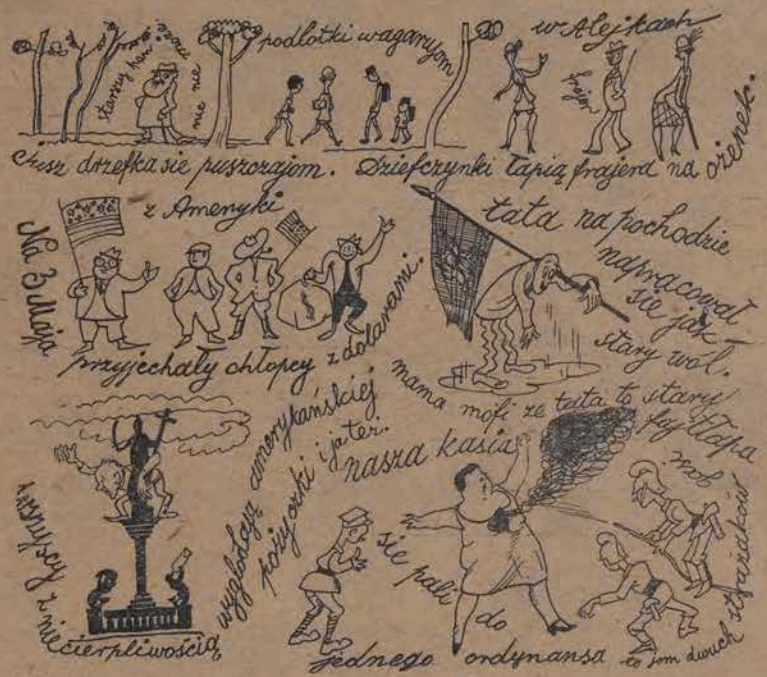 starszy pan
nic nie
podlotki wagaryjom
w Alejkach
frajer
Cóisz drzefka sie puszczajom. Dziefczynki łapią frajera na ożenek.
Na 3 Maja
z Ameryki
przyjechały chłopcy z dolarami.
tata na pochodzie
napracował
sie jak
stary wół.
mama mófi ze tata to stary
fajtłapa
wszyscy z nie
cierpliwością
wyglądają amerykańskiej
pożyczki i ja też.
nasza kasia
sie pali do
jednego ordynansa
to som dwuch strażaków